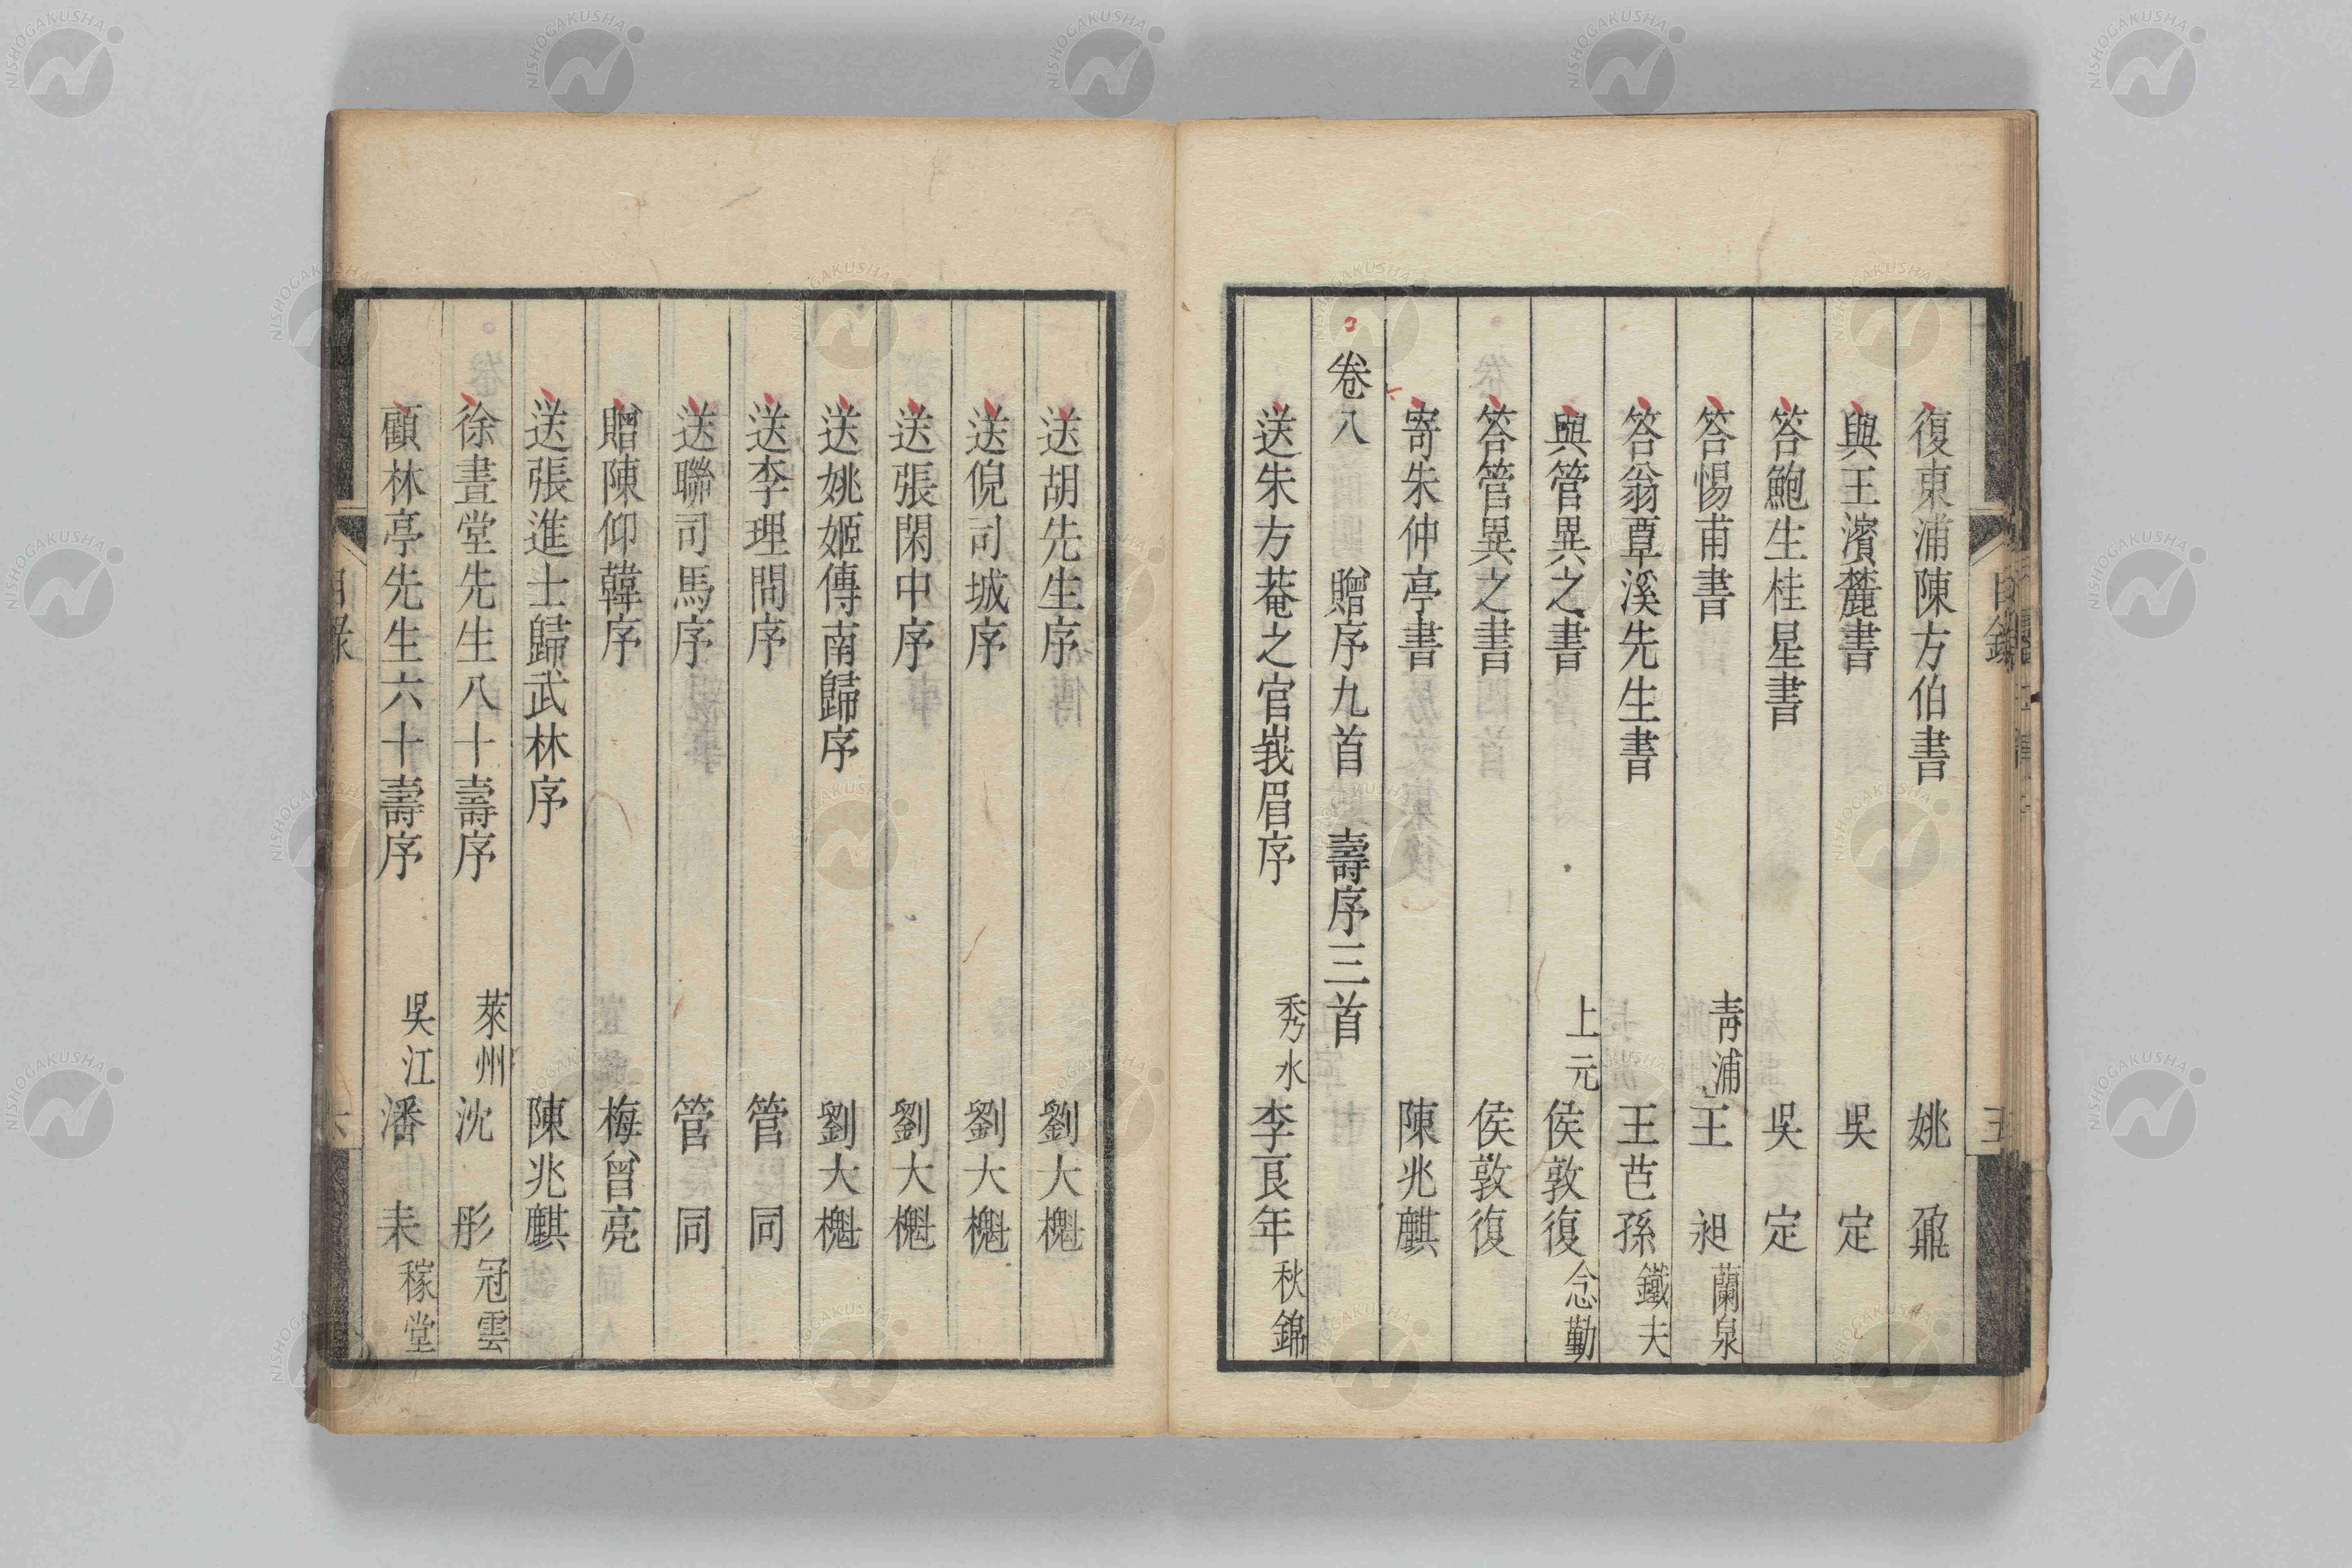 復東浦陳方伯書 姚鼐
與王濱麓書 吳定
答鮑生桂星書 吳定
答惕甫書 青浦 王昶 蘭泉
答翁覃溪先生書 王芑孫 鐵夫
與管異之書 上元 侯敦復 念勤
答管異之書 侯敦復
寄朱仲亭書 陳兆麒
卷八 贈序九首 壽序三首
送朱方菴之官峩眉序 秀水 李良年 秋錦
送胡先生序 劉大櫆
送倪司城序 劉大櫆
送張閑中序 劉大櫆
送姚姬傳南歸序 劉大櫆
送李理問序 管同
送聯司馬序 管同
贈陳仰韓序 梅曾亮
送張進士歸武林序 陳兆麒
徐晝堂先生八十壽序 萊州 沈彤 冠雲
顧林亭先生六十壽序 吳江 潘耒 稼堂
目錄
六
NISHOGAKUSHA